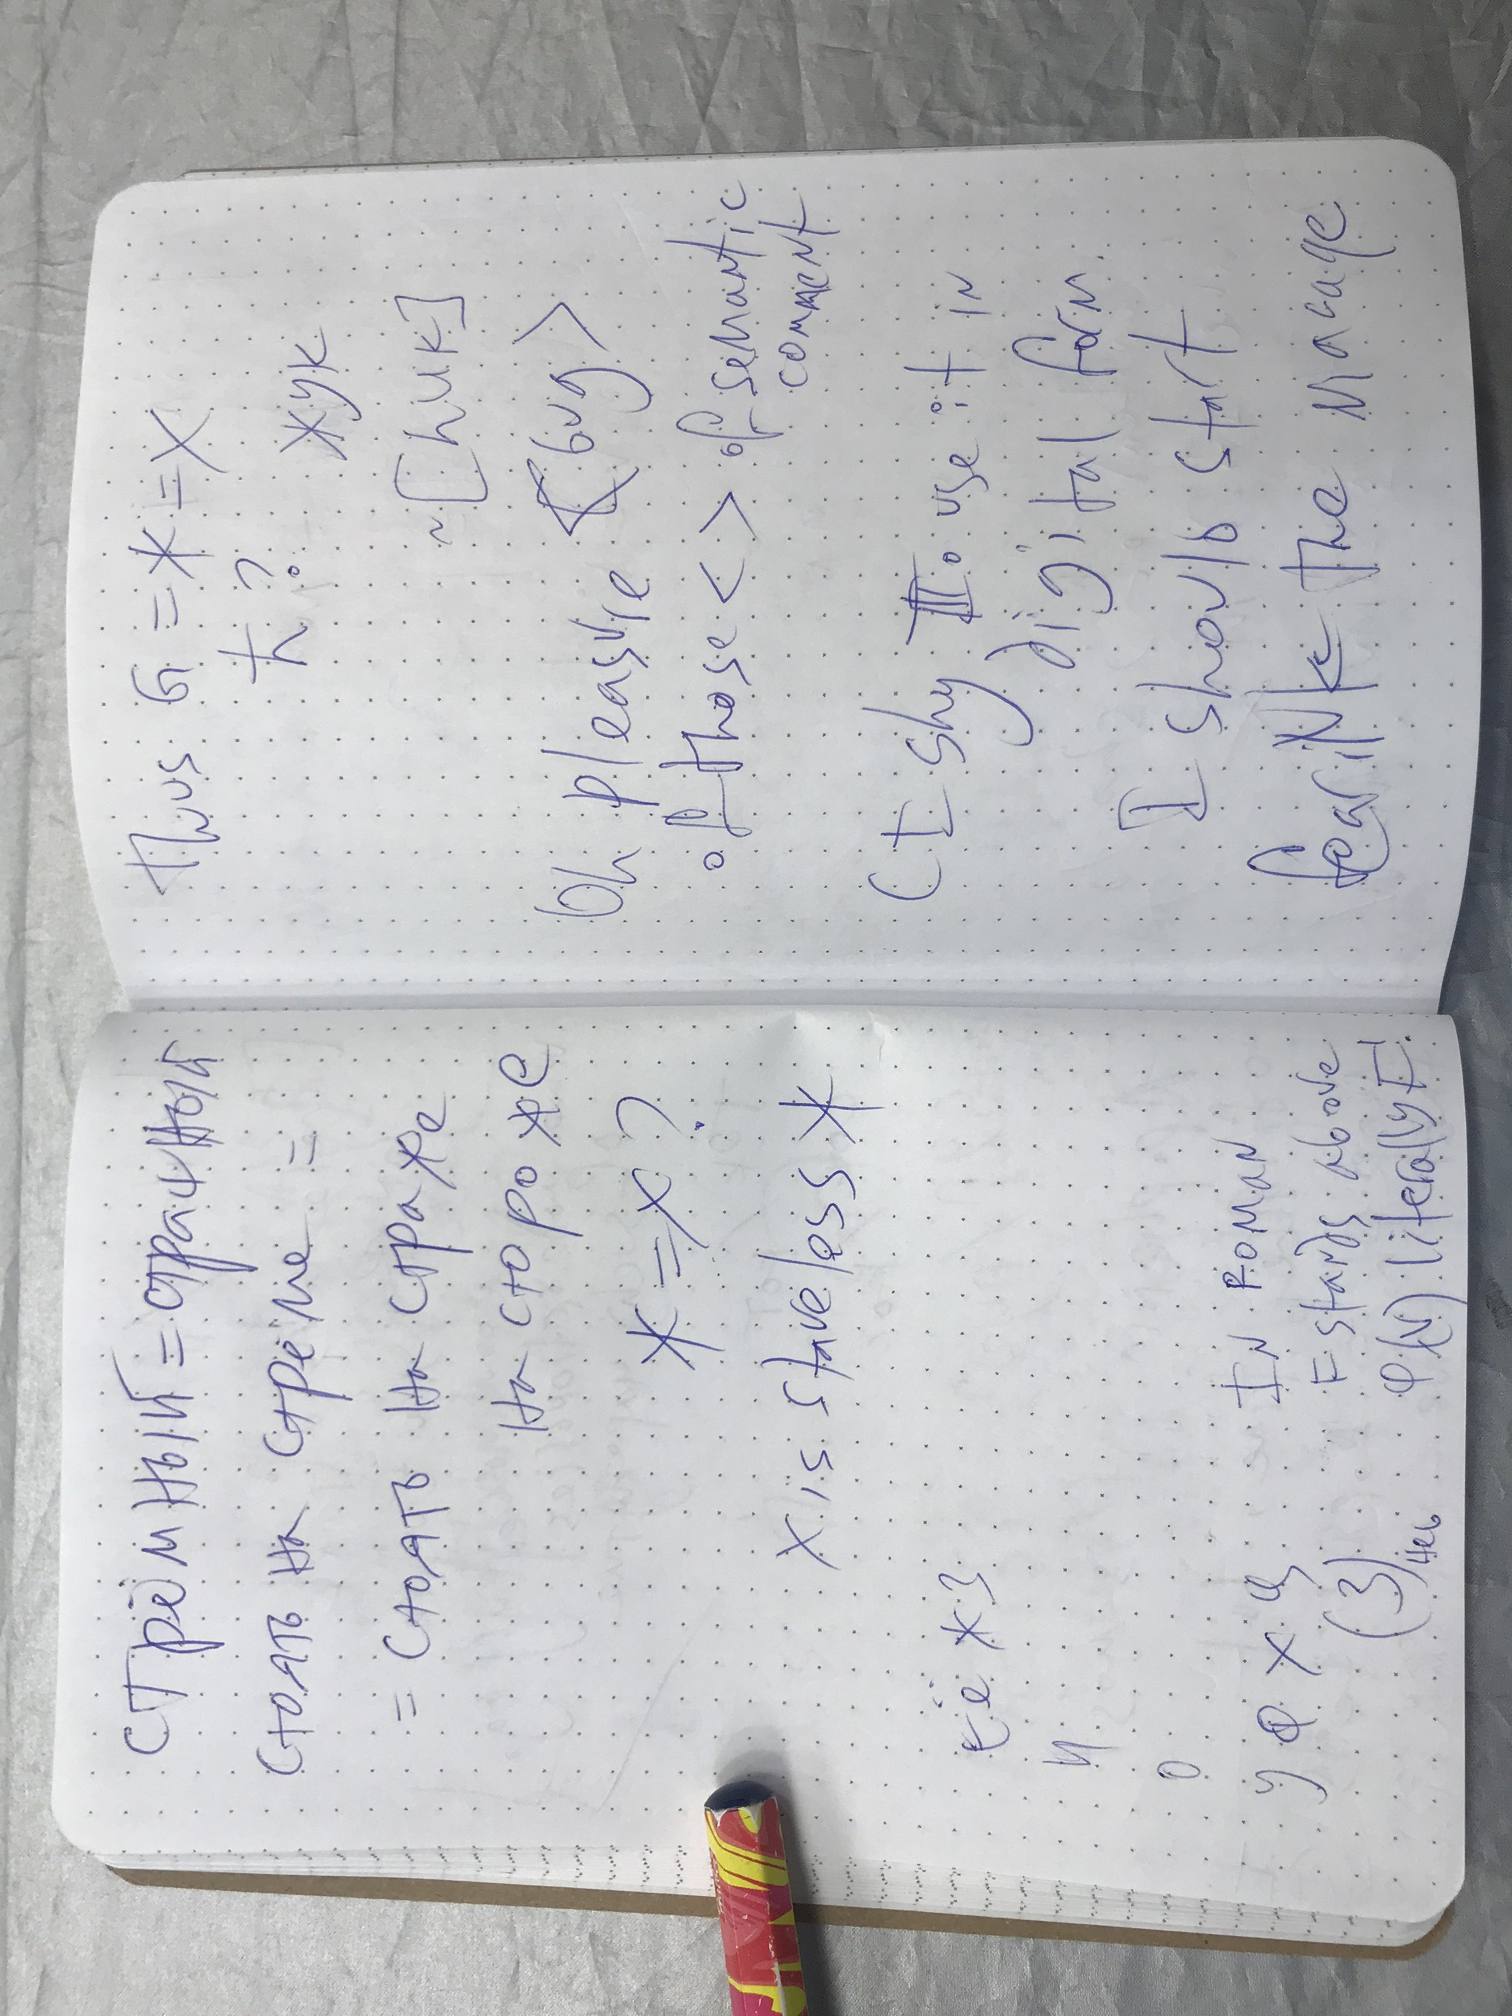 СТРЁМНЫЙ = страчный
стоять на стрёме =
= стоять на страже
на стороже
ж = х?
х is staveless ж
её ж з
и
о
у ф х ц
(3) Heb
IN ROMAN
F stands above
Ф(N) literally F!
Thus G = ж = X
ћ?
жук
~[huk]
Oh pleasure <bug>
of those < > of semantic
comment
(I shy to use it in
digital form
I should start
fearink the macaqe